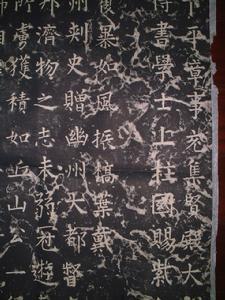 下平章事充集賢殿大
待書學士上柱國賜紫
後果如風振槁葉戴
州刺史贈幽州大都督
濟物之志未弱冠遊
虜獲積如丘山云一